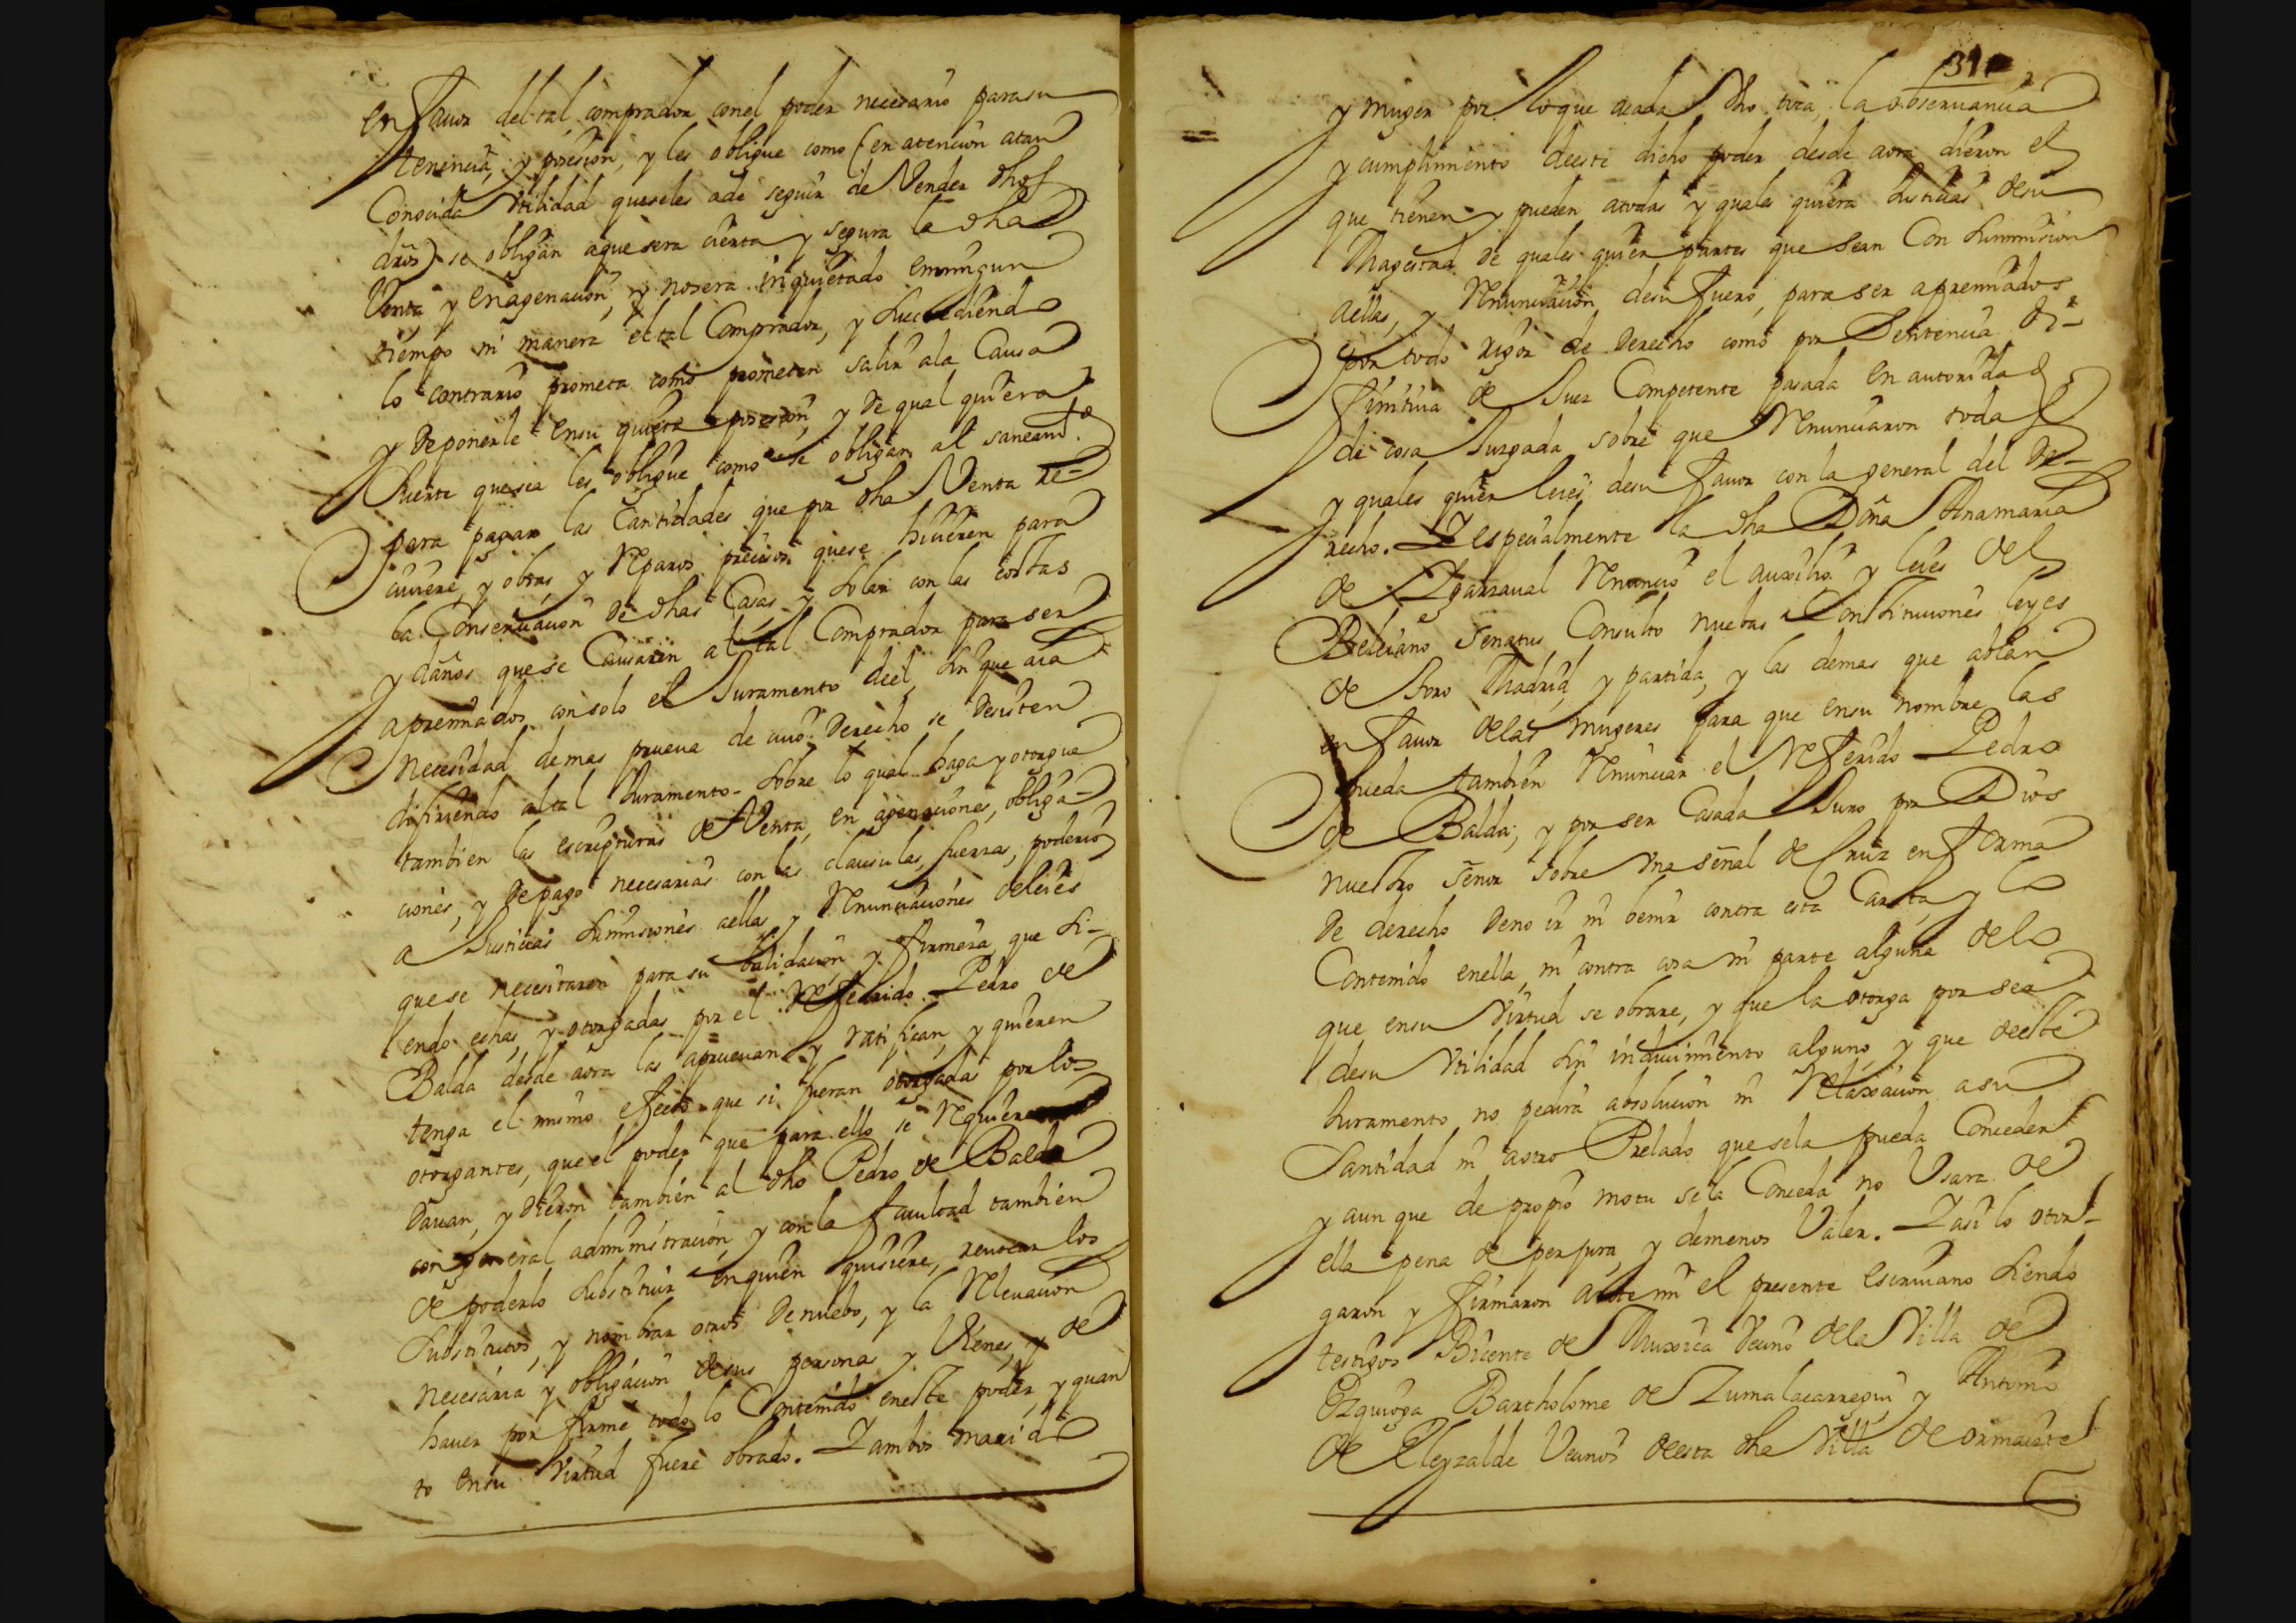 en favor del tal comprador con el poder necesario parasu
tenencia, y posesion, y les obligue como (en atencion atan
Conocida Utilidad queseles ade seguir de Vender dhos
dros) se obligan aque sera cierta y segura la dha
Venta y enagenacion, y nosera inquietado enningun
tiempo ni manera el tal Comprador, y succediendo
lo contrario prometa como prometen salir ala Causa
y deponerle ensu quieta posesion, y de qual quiera
Suerte quesea les obligue como se obligan al saneamto.
para pagar las Cantidades que por dha Venta re-
civiere, y obras, y Reparos precisos quese hicieren para
la Conservacion de dhas Casas, y solar con las costas
y daños quese Causaren al tal Comprador para ser
apremiados con solo el Juramento deel, sin que aia
necesidad demas prueva de cuio Derecho se desisten
difiriendo al tal Juramento. Sobre lo qual haga y otorgue
tambien las escripturas de Venta, en agenaciones, obliga-
ciones, y de pago necesarias con las clausulas, fuerzas, poderio
a Justicias sumisiones aellas y Renunciaciones deleies
quese necesitaren para su balidacion, y firmeza, que si-
endo echas, y otorgadas por el Referido Pedro de
Balda desde aora las apruevan y ratifican, y quieren
tenga el mismo efecto que si fueran otorgadas por los
otorgantes, que el poder que para ello se Requiere
davan, y dieron tambien al dho Pedro de Balda
con general administracion, y con la facultad tambien
de poderlo substituir enquien quisiere, revocar los
substitutos, y nombrar otros denuebo, y la Relevacion
necesaria y obligacion desus personas y Vienes, y de
haver por firme todo lo Contenido eneste poder, y quan
to ensu Virtud fuere obrado. Y ambos marido
31
y muger por lo que acada Vno toca, la observancia
y cumplimiento deeste dicho poder desde aora dieron el
que tienen y pueden atodas y quales quiera Justicias desu
Magestad de quales quier partes que sean Con summision
aellas, y Renunciacion desu fuero, para ser apremiados
por todo rigor de Derecho como por Sentencia di-
finitiva de Juez Competente pasada en autoridad
de cosa Juzgada sobre que Renunciaron todas
y quales quier leies desu favor con la general del de-
recho. Y especialmente la dha Doña Anamaria
de Ygarzaval Renuncio el auxilio y leies del
Beleiano Senatus Consulto nuebas Constituciones leyes
de Toro Madrid, y partida, y las demas que ablan
en favor delas mugeres para que ensu nombre las
pueda tambien Renunciar el Referido Pedro
de Balda; y por ser Casada Juro por Dios
nuestro Señor sobre vna señal de Cruz en forma
de derecho deno ir ni benir contra esta Carta, y lo
Contenido enella, ni contra cosa ni parte alguna delo
que ensu Virtud se obrare, y que la otorga por ser
desu Vtilidad sin inducimiento alguno, y que deeste
Juramento no pedira absolucion ni Relaxacion asu
Santidad ni aotro Prelado que sela pueda Conceder
y aun que de propio motu sela Conceda no Vsara de
ella pena de perjura, y demenos Valer. Y asi lo otor-
garon y firmaron ante mi el presente escrivano siendo
testigos Bicente de Muxica Vecino dela Villa de
Ezquioga Bartholome de Zumalacarregui, y Antonio
de Eleyzalde Vecinos deesta dha Villa de ormaiztegui